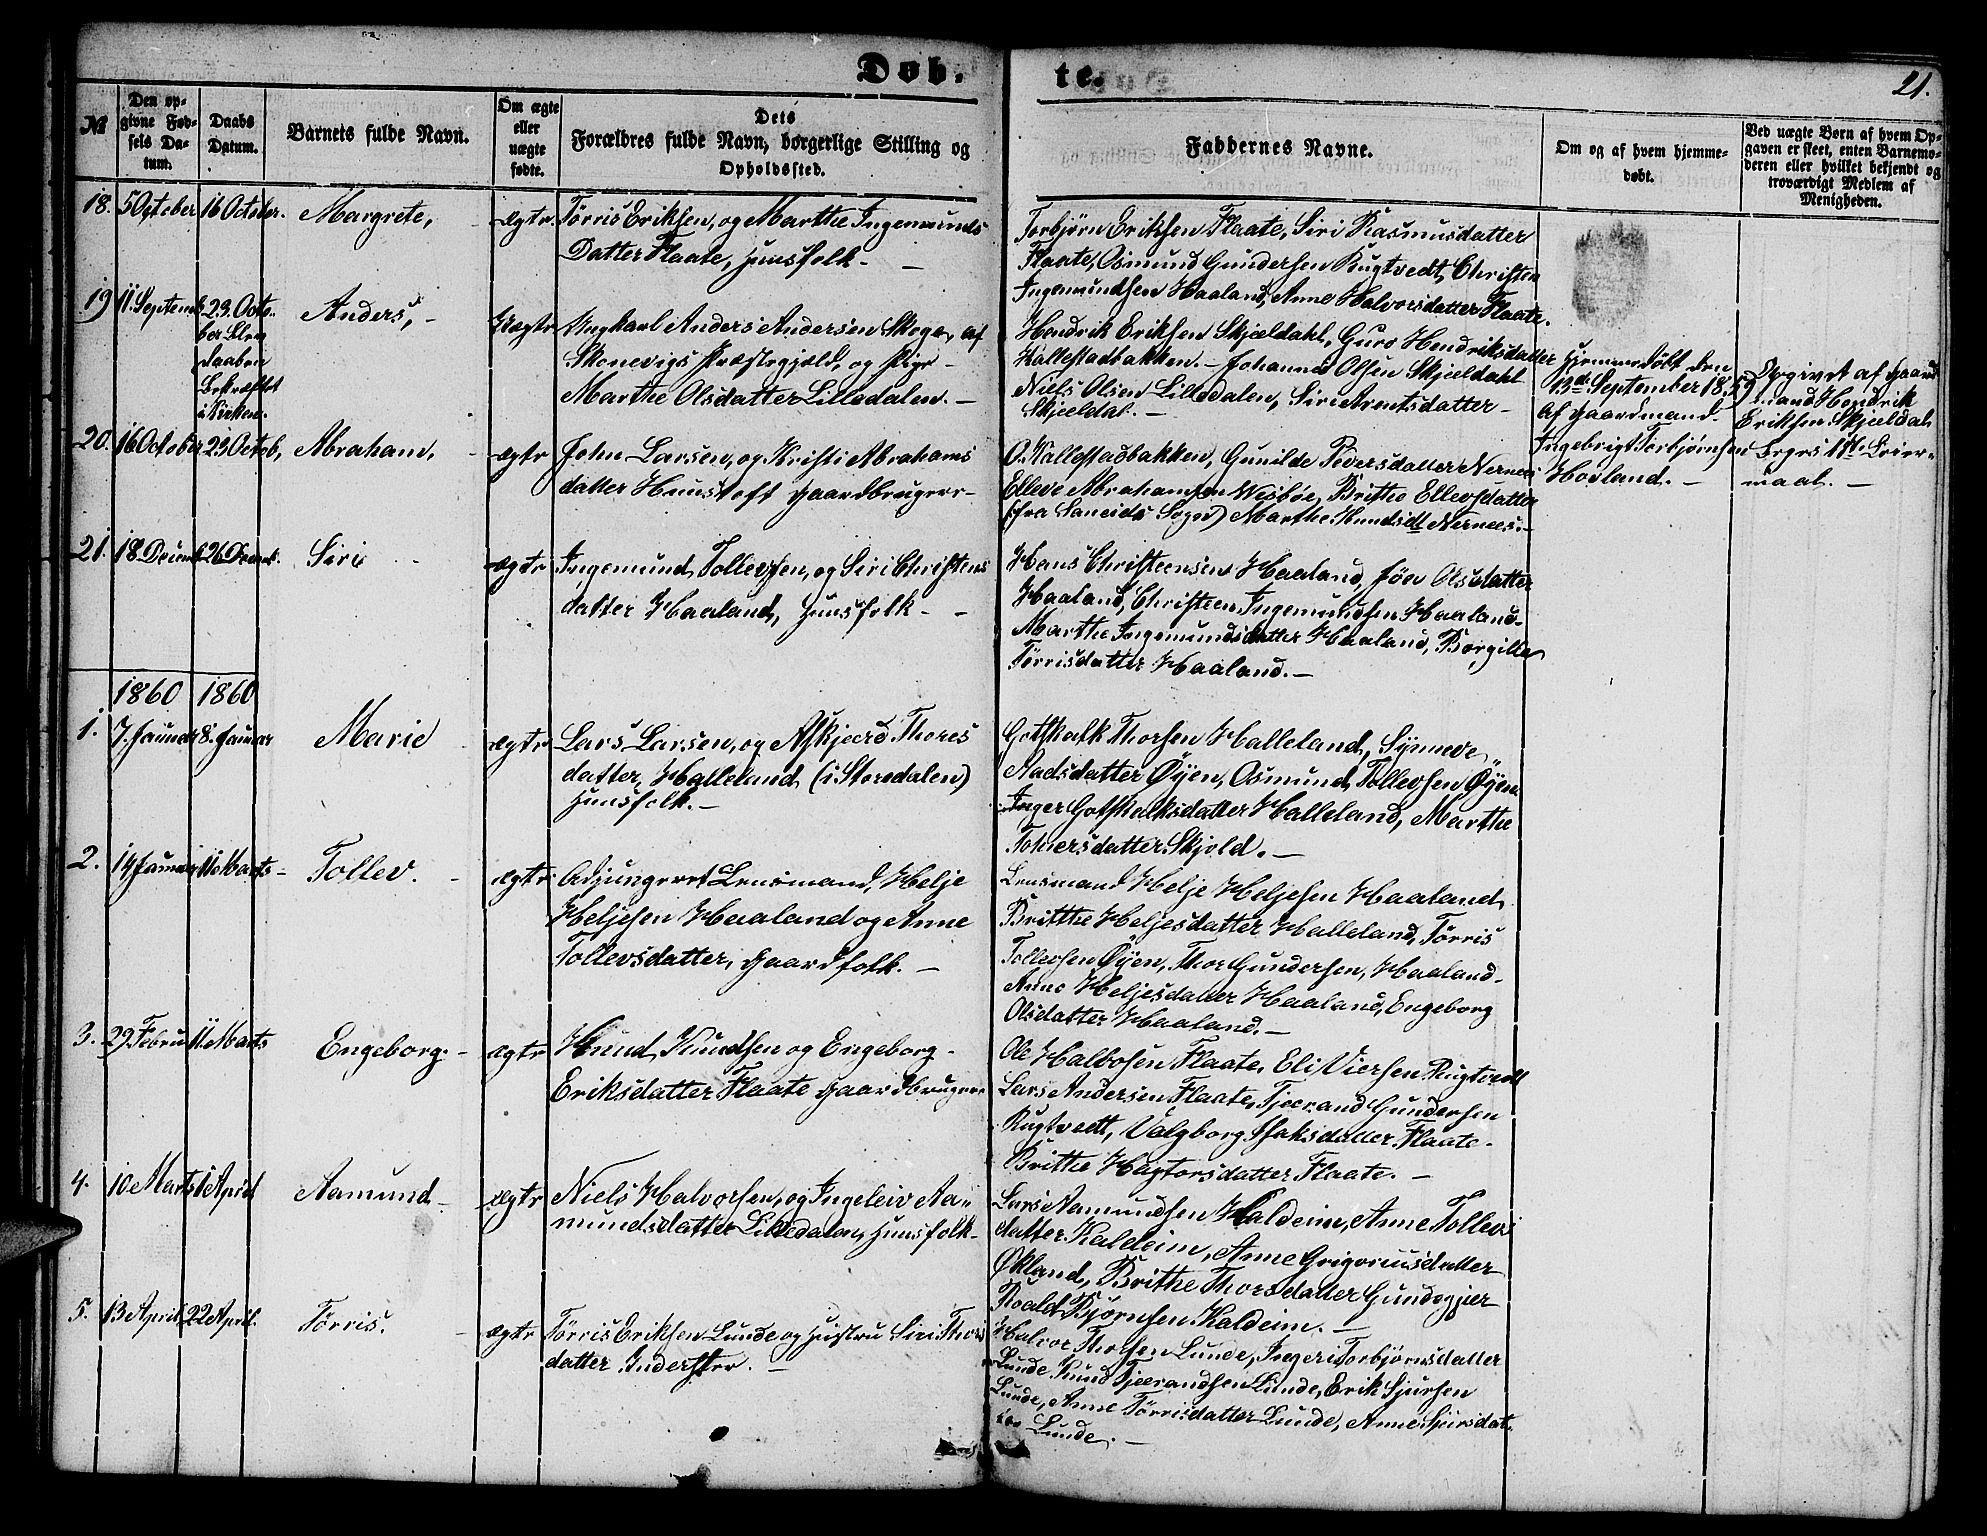 Døb.
te.
21.
№
Den op-
givne Fød-
sels Da-
tum.
Daabs
Datum.
Barnets fulde Navn.
Om ægte
eller
uægte
fødte.
Dets
Forældres fulde Navn, borgerlige Stilling og
Opholdssted.
Faddernes Navne.
Om og af hvem hjemme-
døbt.
Ved uægte Børn af hvem Op-
gaven er skeet, enten Barnemo-
deren eller hvilket bekjendt og
troværdigt Medlem af
Menigheden.
18. 5 October 16 October. Margrete, ægte. Tørris Eriksen, og Marthe Ingemunds
Datter Flaate, Huusfolk. —
Torbjørn Eriksen Flaate, Siri Rasmusdatter
Flaate, Osmund Gundersen Rugtvedt, Christen
Ingemundsen Haaland, Anne Halvorsdatter Flaate.
19 11. Septemb. 23. Octo-
ber blev
Daaben
Bekræftet
i Kirken.
Anders, —
Uægte Ungkarl Anders Andersen Skoge, af
Skonevigs Præstegjeld, og Pige
Marthe Olsdatter Lilledalen. —
Hendrik Eriksen Skjældahl, Guro Hendriksdatter
Kallestadbakken. — Johannes Olsen Skjeldahl
Niels Olsen Lilledalen, Siri Arentsdatter
Skjeldal. —
Hjemmedøbt den
13de September 1859
af Gaardmand
Ingebrigt Torbjørnsen
Hovland. —
Opgivet af Gaard
mand Hendrik
Eriksen Skjeldal
Begges 1ste Leier-
maal. —
20. 16 October 23 Octob, Abraham, ægte John Larsen, og Kristi Abrahams
datter Huustoft Gaardbrugere
O. Kallestadbakken, Gunilde Peversdatter Nernes
Elleve Abrahamsen Wisbøe, Brithe Ellevsdatter
(fra Saneids Sogn) Marthe Knudsdt Nernes. —
21. 18 Decemb. 26 Decemb. Siri ægte Ingemund Tollevsen, og Siri Christens
datter Haaland, Huusfolk —
Hans Christensen Haaland, Joa Olsdatter
Haaland, Christen Ingemundsen Haaland
Marthe Ingemundsdatter Haaland, Borgille
Tørrisdatter Haaland. —
1860 1860
1. 7. Januar 8. Januar Marie ægte Lars Larsen, og Askjerd Thores
datter Halleland (i Storedalen)
Huusfolk. —
Gotskalk Thorsen Halleland, Synneve
Aadsdatter Øyen, Osmund Tollevsen Øyen
Inger Gotskalksdatter Halleland, Marthe
Tolliersdatter Skjold. —
2. 14 Januar 11 Marts — Tollev. ægte Adjungeret Lensmand, Helje
Heljesen Haaland og Anne
Tollevsdatter, Gaardfolk. —
Lensmand Helje Heljesen Haaland
Britthe Heljesdatter Halleland, Tørris
Tollevsen Øyen, Thor Gundersen, Haaland
Anne Heljesdatter Haaland, Engeborg
Olsdatter Haaland. —
3. 29 Febru 11 Marts Engeborg. — ægte Knud Knudsen og Engeborg
Eriksdatter Flaate Gaardbrugere
Ole Halvosen Flaate, Eli Viersen Rugtvedt
Lars Andersen Flaate, Tjerand Gundersen
Rugtvedt, Valgborg Isaksdatter Flaate
Brithe Hagtorsdatter Flaate. —
4. 10 Marts 1 April Aamund — ægte Niels Halvorsen, og Ingeleiv Aa-
mundsdatter Lilledalen, Huusfolk
Lars Aamundsen Kaldeim, Anne Tollevs
datter Kaldeim, Anne Grigoriusdatter
Økland, Brithe Thorsdatter Gundegjer
Roald Bjørnsen Kaldeim. —
5. 13 April 22 April. Tørris. ægte Tørris Eriksen Lunde og Hustru Siri Thors
datter Inderster. —
Halvor Thorsen Lunde, Ingeri Torbjørnsdatter
Lunde Knud Tjerandsen Lunde, Erik Sjursen
Lunde, Anne Tørrisdatter Lunde, Anne Sjursdat-
ter Lunde. —